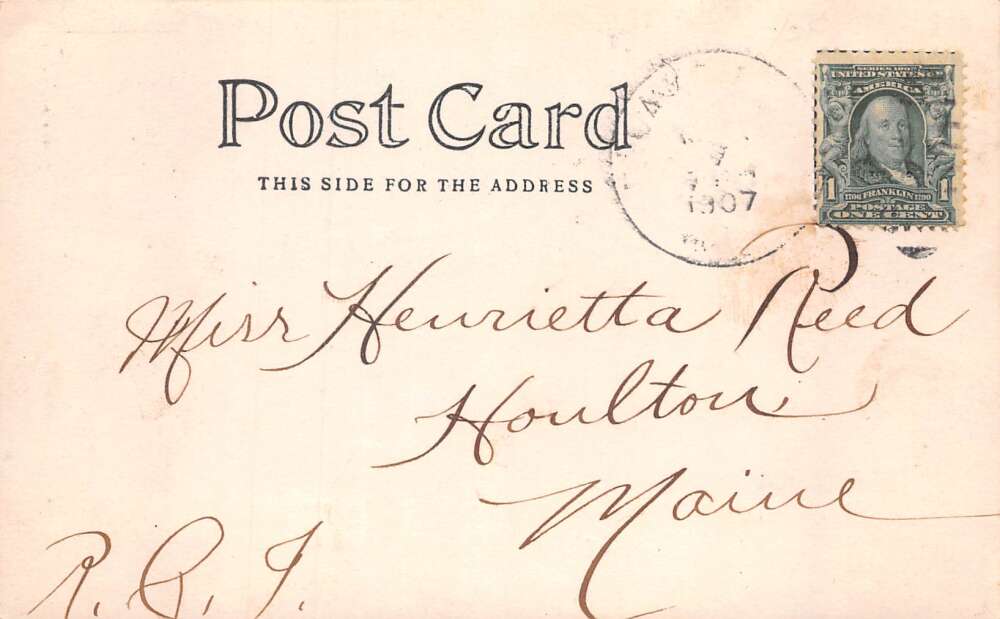 Post Card
THIS SIDE FOR THE ADDRESS
1907
SERIES 1902
UNITED STATES OF
AMERICA
1 1706 FRANKLIN 1790 1
POSTAGE
ONE CENT
Miss Henrietta Reed
Houlton,
Maine